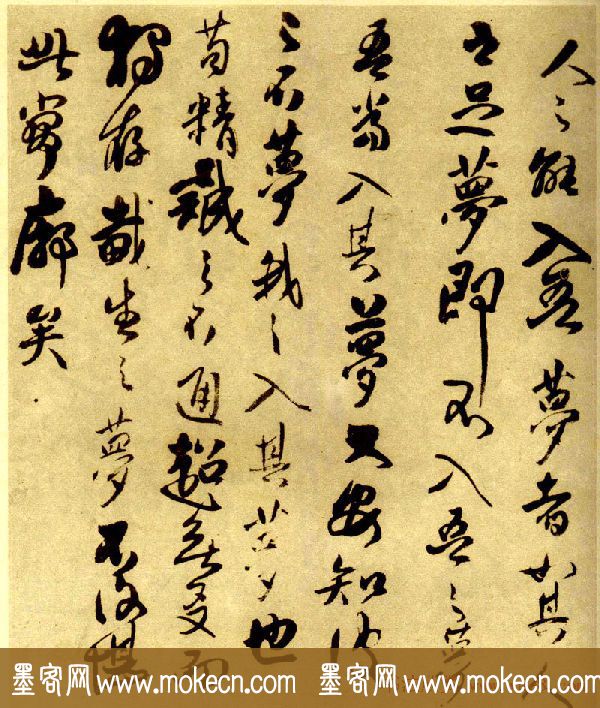 人之能入吾夢者如其
足夢即不入吾之夢
吾當入其夢又安知彼
之不夢我之入其夢也
苟精誠之不通
存哉生之夢不復
此寥廓矣
墨客网 www.mokecn.com 墨客网 www.mokecn.com